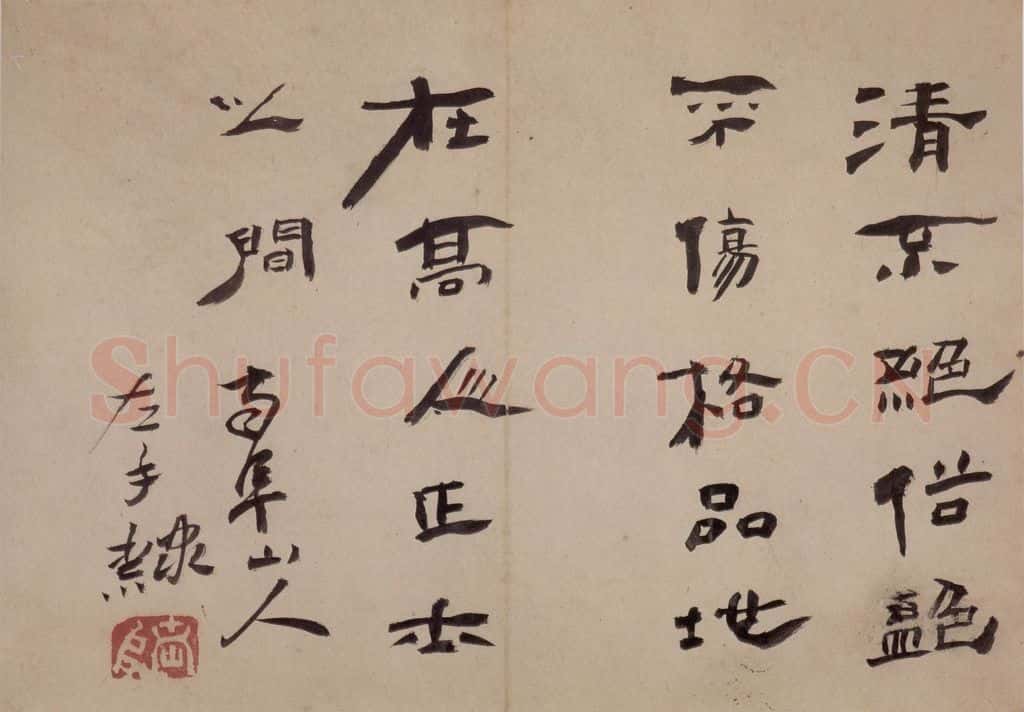 清不絕俗艷
不傷格品地
在髙人正士
之間 南阜山人
左手隸
Shufawang.CN